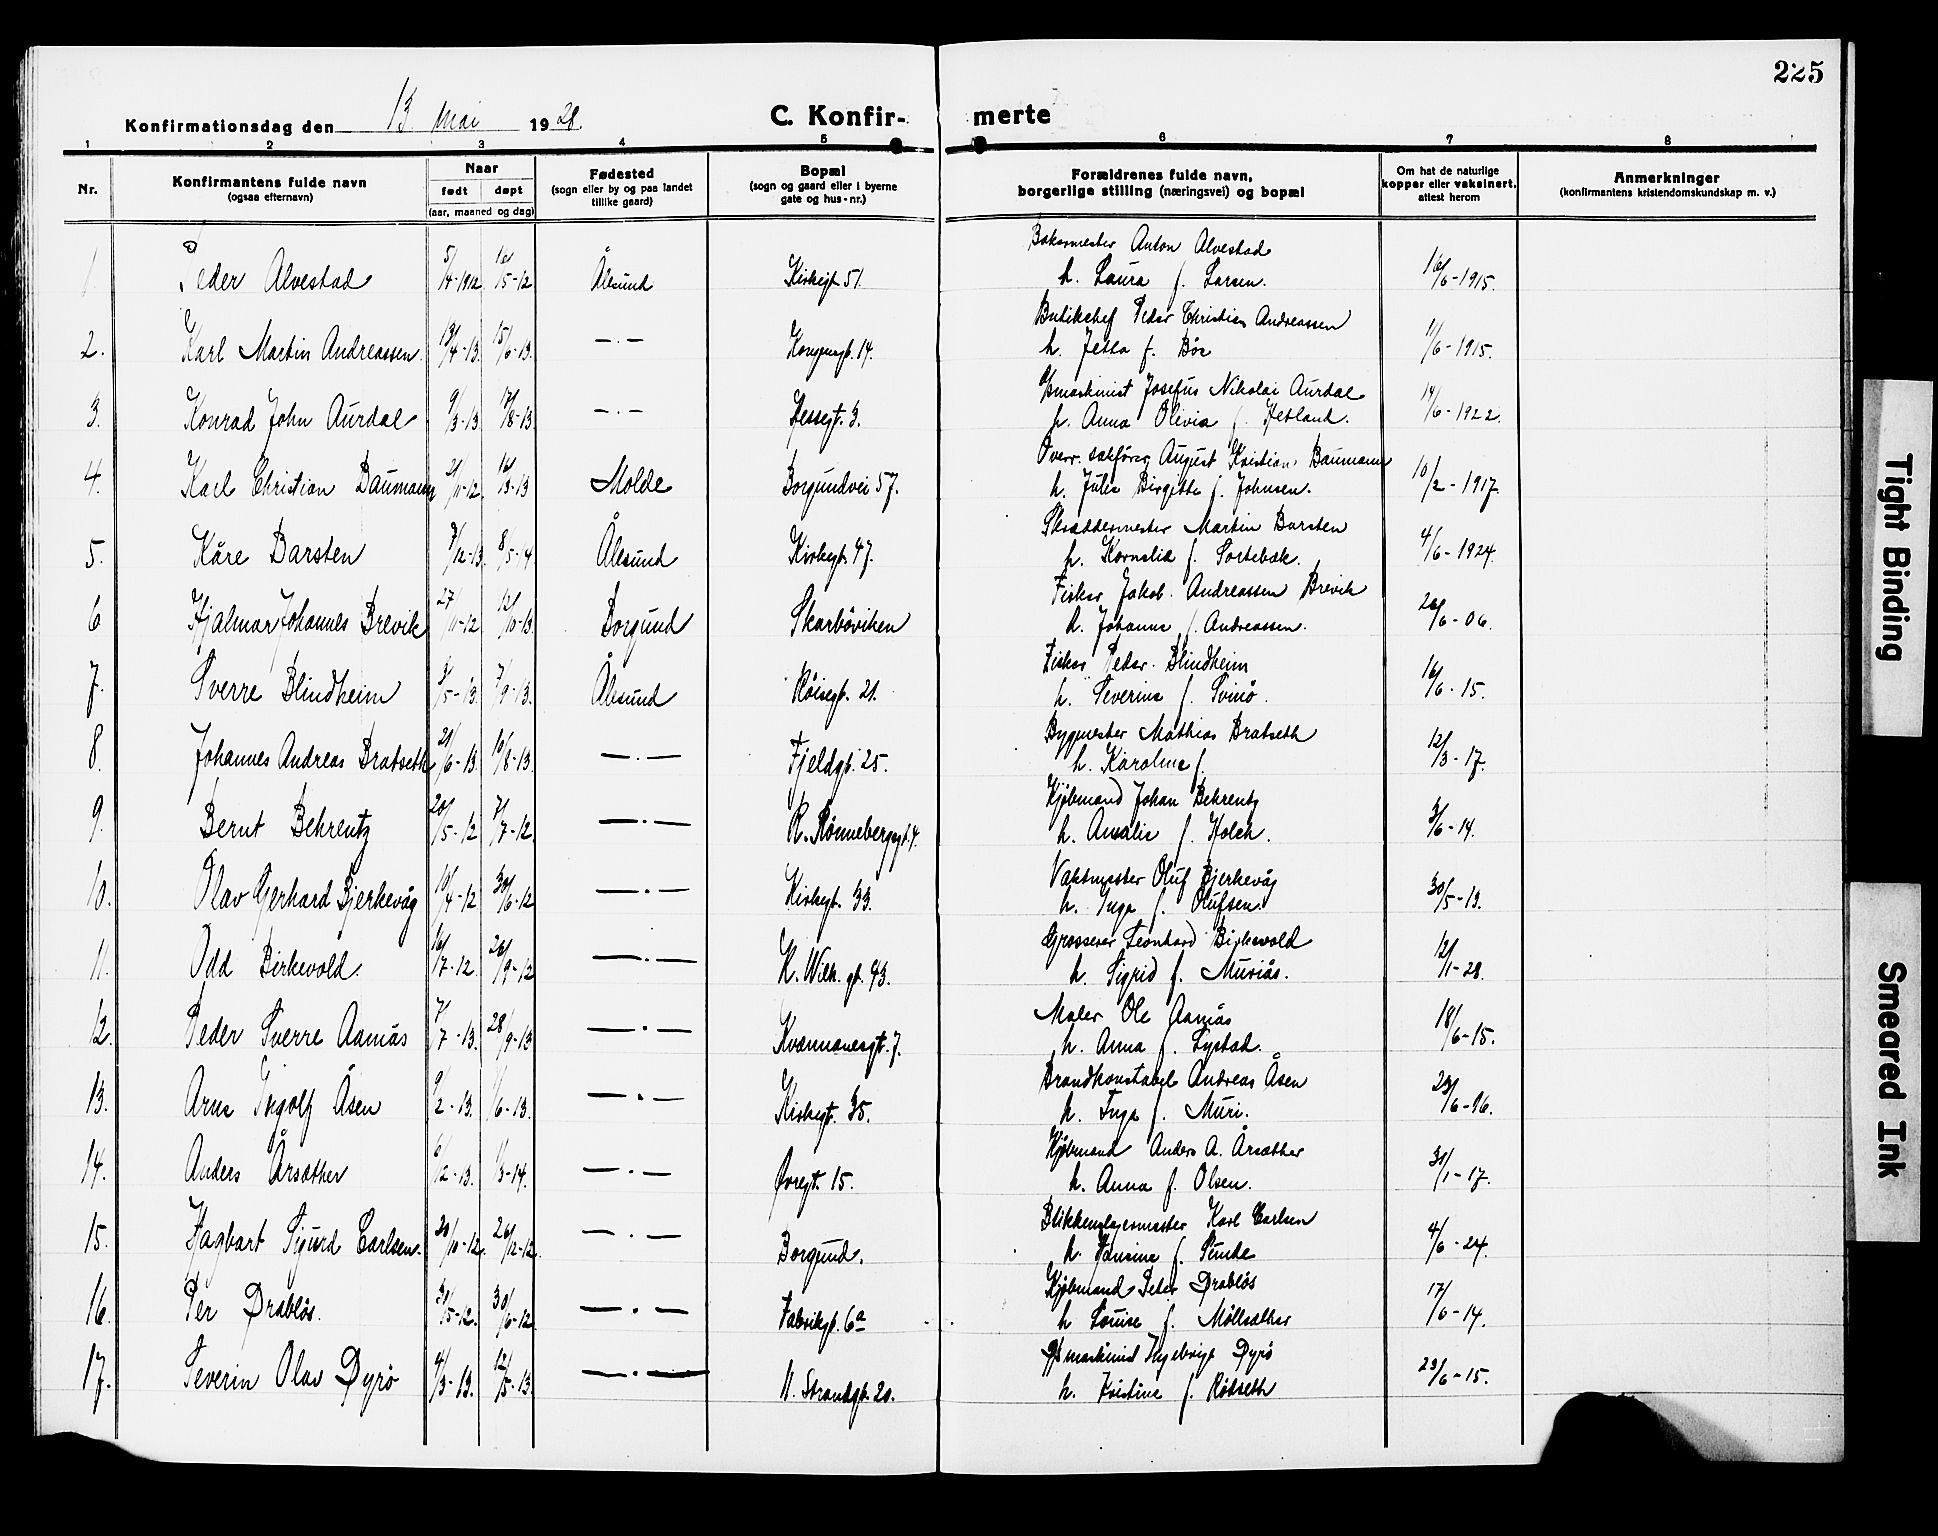 225
Konfirmationsdag den 13 mai 1928.
C. Konfir- merte
1 2 3 4 5 6 7 8
Nr.
Konfirmantens fulde navn
(ogsaa efternavn)
Naar
født døpt
(aar, maaned og dag)
Fødested
(sogn eller by og paa landet
tillike gaard)
Bopæl
(sogn og gaard eller i byerne
gate og hus-nr.)
Forældrenes fulde navn,
borgerlige stilling (næringsvei) og bopæl
Om hat de naturlige
kopper eller vaksinert,
attest herom
Anmerkninger
(konfirmantens kristendomskundskap m. v.)
Bakermester Anton Alvestad
1 Peder Alvestad 5/4-1912 16/5-12 Ålesund Kirkegt. 51. h. Laura f. Larsen. 16/6-1915.
Butikchef Peder Christian Andreassen
2. Karl Martin Andreassen. 13/4-13. 15/6-13. —.— Kongensgt. 14. h. Jetta f. Bøe 11/6-1915.
maskinist Josefus Nikolai Aurdal
3. Konrad John Aurdal 9/3-13. 17/8-13. —.— Hessegt. 3. h. Anna Olivia f. Hetland. 14/6-1922.
Overr. sakfører August Kristian Baumann
4. Karl Christian Baumann 21/11-12. 16/3-13 Molde Borgundvei 57. h. Julie Birgitte f. Johnsen. 10/2-1917.
Skræddermester Martin Barsten
5. Kåre Barsten /12-13. 8/5-14 Ålesund Kirkegt. 47. h. Kornelia f. Sortebak. 4/6-1924.
Fisker Jakob Andreassen Brevik
6 Hjalmar Johannes Brevik 27/11-12 12/10-13. Borgund Skarbøviken h. Johanne f. Andreassen. 26/6-06.
Fisker Peder Blindheim
7. Sverre Blindheim 3/5-13. 7/9-13. Ålesund Røisegt. 21. h. Severine f. Svinø. 16/6-15.
Bygmester Mathias Bratseth
8. Johannes Andreas Bratseth 21/6-13. 10/8-13. —.— Fjeldgt. 25. h. Karoline f. 12/3-17.
Kjøbmand Johan Behrentz
9. Bernt Behrentz 20/5-12 7/7-12. —.— R. Rønnebergsgt. 4. h. Amalie f. Holck. 3/6-14.
Vaktmester Oluf Bjerkevåg
10. Olav Gerhard Bjerkevåg 10/4-12 30/6-12 —.— Kirkegt. 33. h. Inga f. Olufsen. 30/5-13.
Grosserer Leonhard Birkevold
11. Odd Birkevold. 16/7-12. 26/9-12 —.— K. Wilh. gt. 43. h. Sigrid f. Muriås. 12/1-28.
Maler Ole Aamås
12. Peder Sverre Aamås 7/7-13. 28/9-13 —.— Kvennanesgt. 7. h. Anna f. Lystad. 18/6-15.
Brandkonstabel Andreas Åsen
13. Arne Ingolf Åsen 9/2-13. 1/6-13. —.— Kirkegt. 35. h. Inga f. Muri. 29/6-16.
Kjøbmand Anders A. Årsæther
14. Anders Årsæther 6/12-13. 1/3-14. —.— Øvregt. 15. h. Anna f. Olsen. 31/1-17.
Blikkenslagermester Karl Carlsen
15. Hagbart Sigurd Carlsen. 20/10-12. 26/12-12. —.— Borgund. h. Hansine f. Sunde 4/6-24.
Kjøbmand Peter Drabløs
16. Per Drabløs. 31/5-12. 30/6-12. —.— Fabrikgt. 6a h Louise f. Møllsæther 17/6-14.
maskinist Ingebrigt Dyrø
17. Severin Olav Dyrø 4/3-13. 12/5-13. —.— N. Strandgt. 20. h. Kristine f. Rødseth 29/6-15.
Tight Binding
Smeared Ink